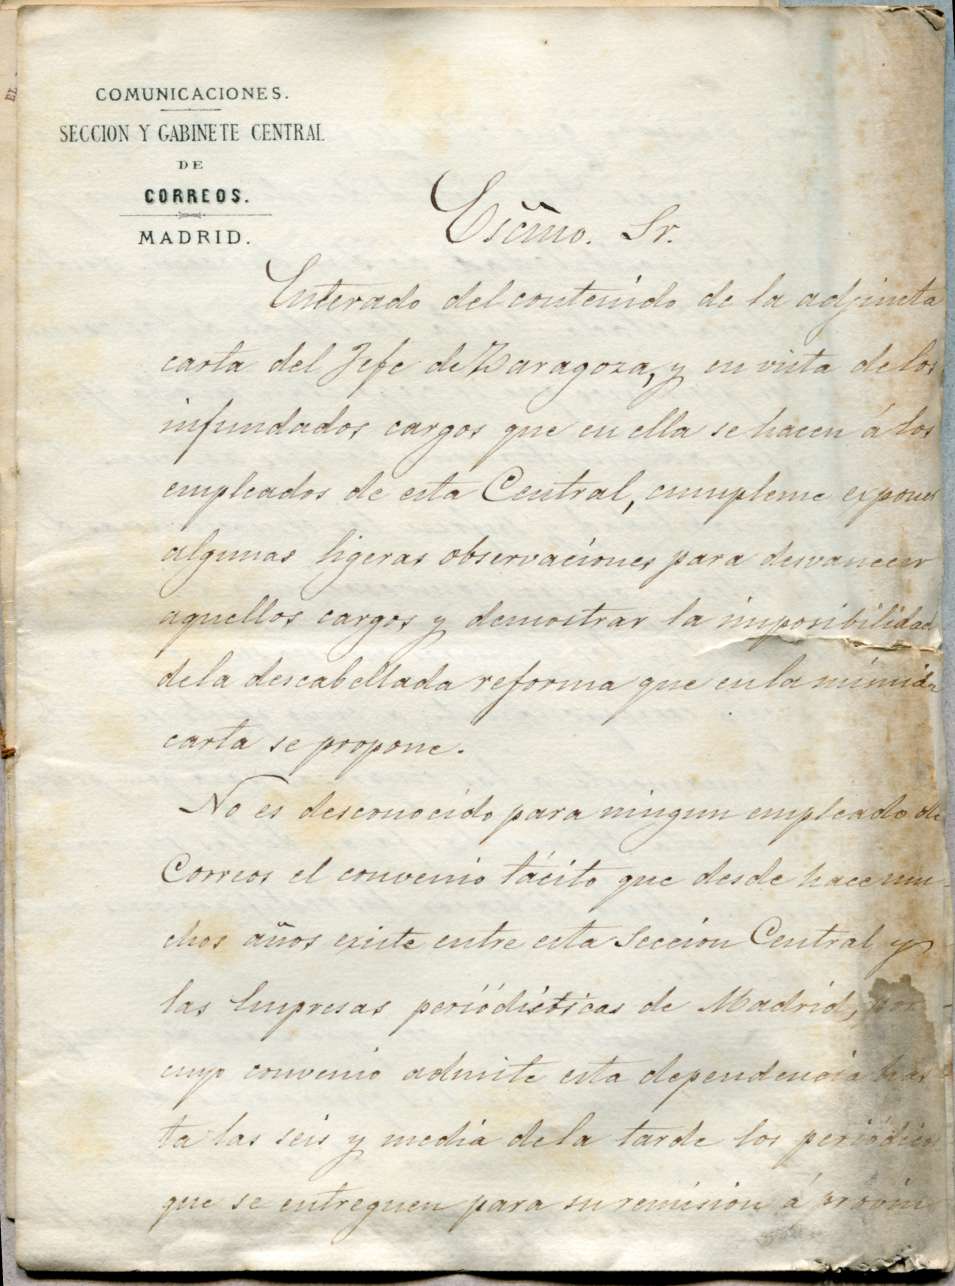 COMUNICACIONES.
SECCION Y GABINETE CENTRAL
DE
CORREOS.
MADRID.
Escmo. Sr.
Enterado del contenido de la adjunta
carta del Jefe de Zaragoza, y en vista de los
infundados cargos que en ella se hacen á los
empleados de esta Central, cumpleme esponer
algunas ligeras observaciones para desvanecer
aquellos cargos y demostrar la imposibilidad
de la descabellada reforma que en la
carta se propone.
No es desconocido para ningun empleado de
Correos el convenio tácito que desde hace mu-
chos años existe entre esta Seccion Central y
las Empresas periódisticas de Madrid, por
cuyo convenio admite esta dependencia has
ta las seis y media de la tarde los periódicos
que se entreguen para su remision á provin